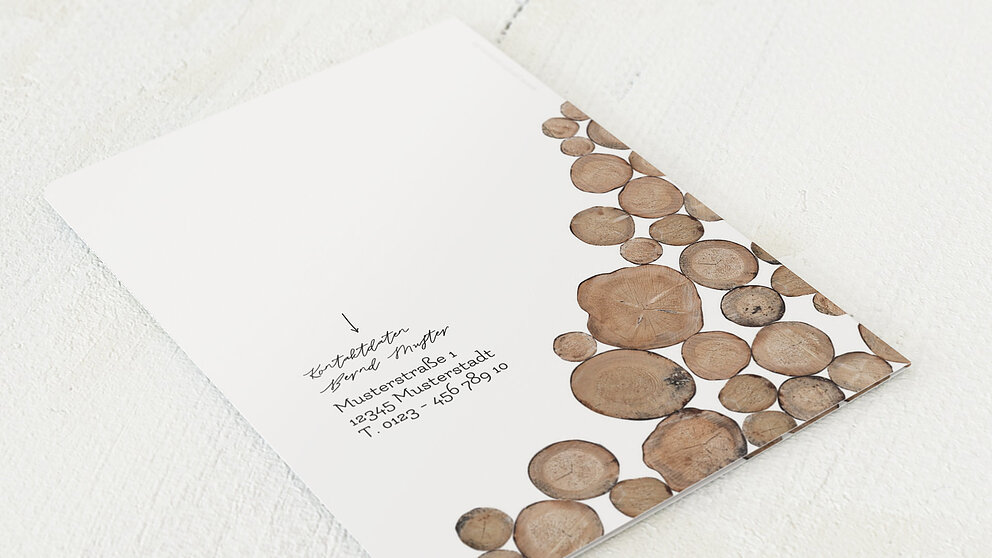 Kontaktdaten
Bernd Muster
Musterstraße 1
12345 Musterstadt
T. 0123 - 456 789 10